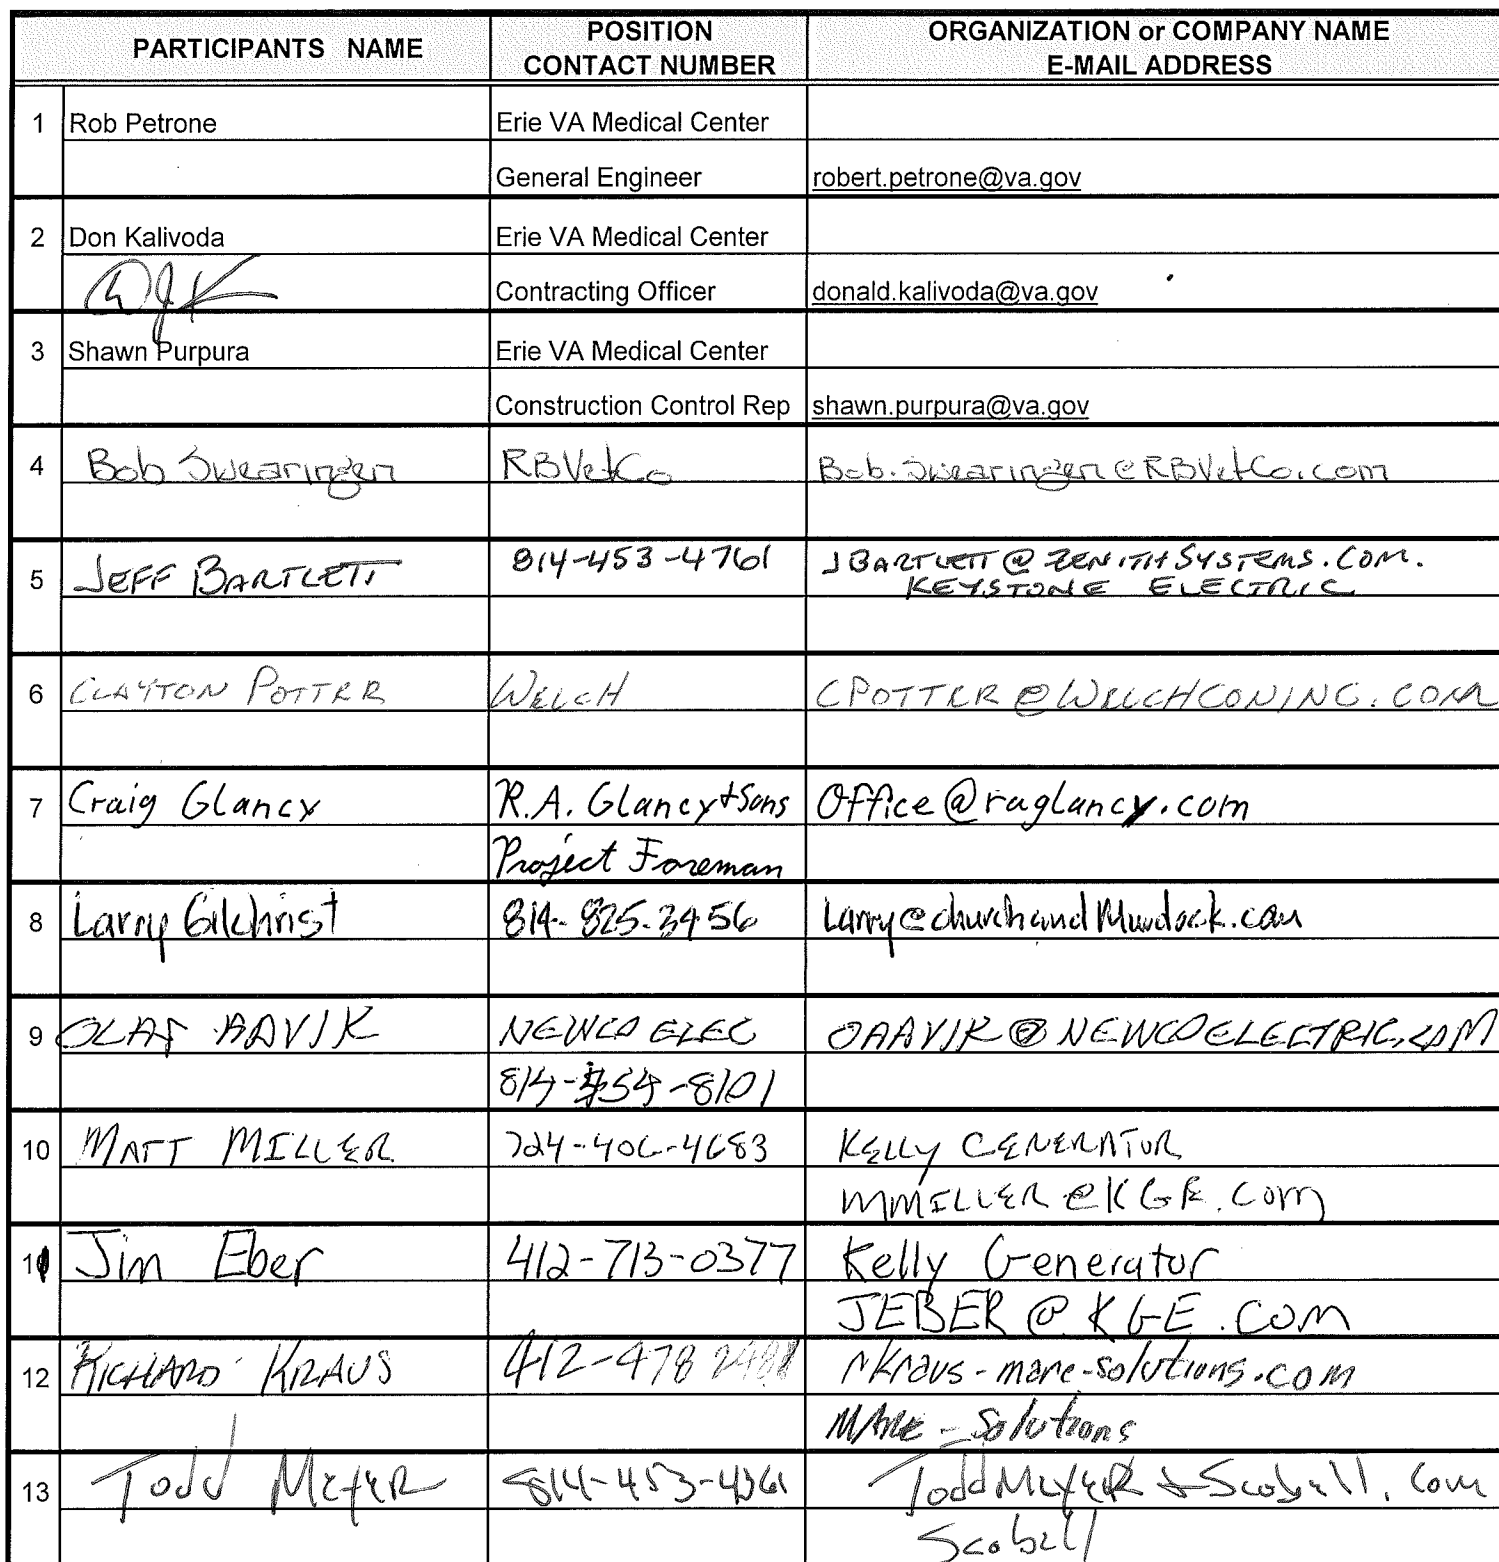 PARTICIPANTS NAME
POSITION
CONTACT NUMBER
ORGANIZATION or COMPANY NAME
E-MAIL ADDRESS
1 Rob Petrone Erie VA Medical Center
General Engineer robert.petrone@va.gov
2 Don Kalivoda Erie VA Medical Center
DJK Contracting Officer donald.kalivoda@va.gov
3 Shawn Purpura Erie VA Medical Center
Construction Control Rep shawn.purpura@va.gov
4 Bob Swearingen RBVetCo Bob.Swearingen@RBVetCo.com
5 JEFF BARTLETT 814-453-4761 JBARTLETT@ZENITHSYSTEMS.COM.
KEYSTONE ELECTRIC
6 CLAYTON POTTER WELCH CPOTTER@WELCHCONINC.COM
7 Craig Glancy R.A. Glancy + Sons Office@raglancy.com
Project Foreman
8 Larry Gilchrist 814-825-3456 Larry@churchandMurdock.com
9 OLAF AAVIK NEWCO ELEC OAAVIK@NEWCOELECTRIC.COM
814-454-8101
10 MATT MILLER 724-406-4683 KELLY GENERATOR
MMILLER@KGE.COM
11 Jim Eber 412-713-0377 Kelly Generator
JEBER@KGE.COM
12 RICHARD KRAUS 412-478 rkraus-mare-solutions.com
MARE-Solutions
13 Todd Meyer 814-453-4361 ToddMeyer & Scobell.com
Scobell